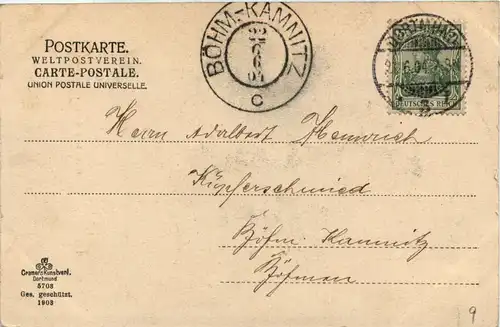 POSTKARTE.
WELTPOSTVEREIN.
CARTE-POSTALE.
UNION POSTALE UNIVERSELLE.
BÖHM-KAMNITZ
22
6
04
C
DORTMUND
DEUTSCHES REICH
Herrn Adalbert Heinrich
Kupferschmied
Böhm. Kamnitz
Böhmen
Cramers Kunstverl.
Dortmund
5703
Ges. geschützt.
1903
9